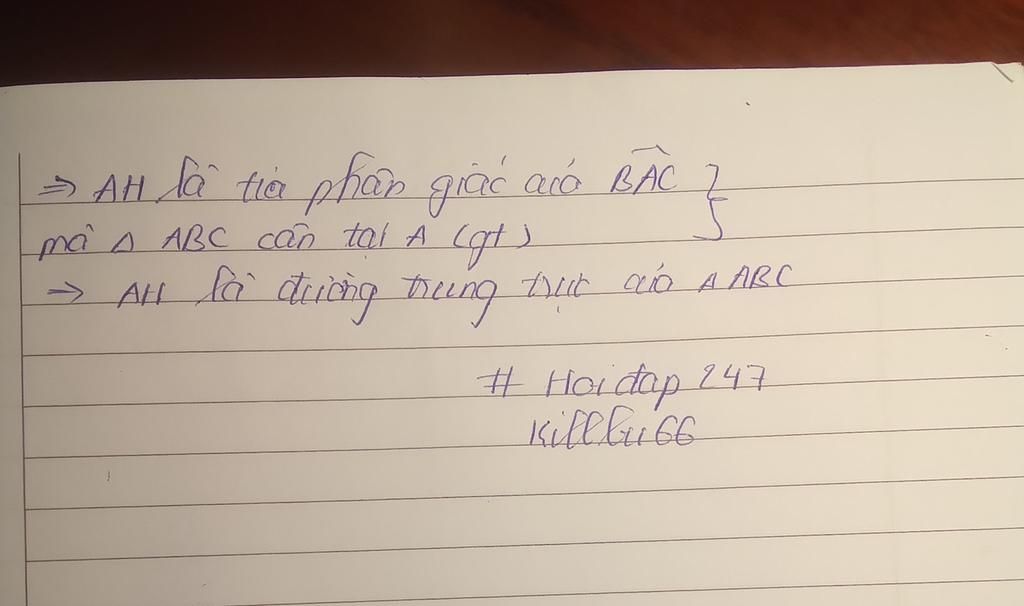 ⇒ AH là tia phân giác của BAC }
mà Δ ABC cân tại A (gt)
→ AH là đường trung trực của Δ ABC
# Hoidap 247